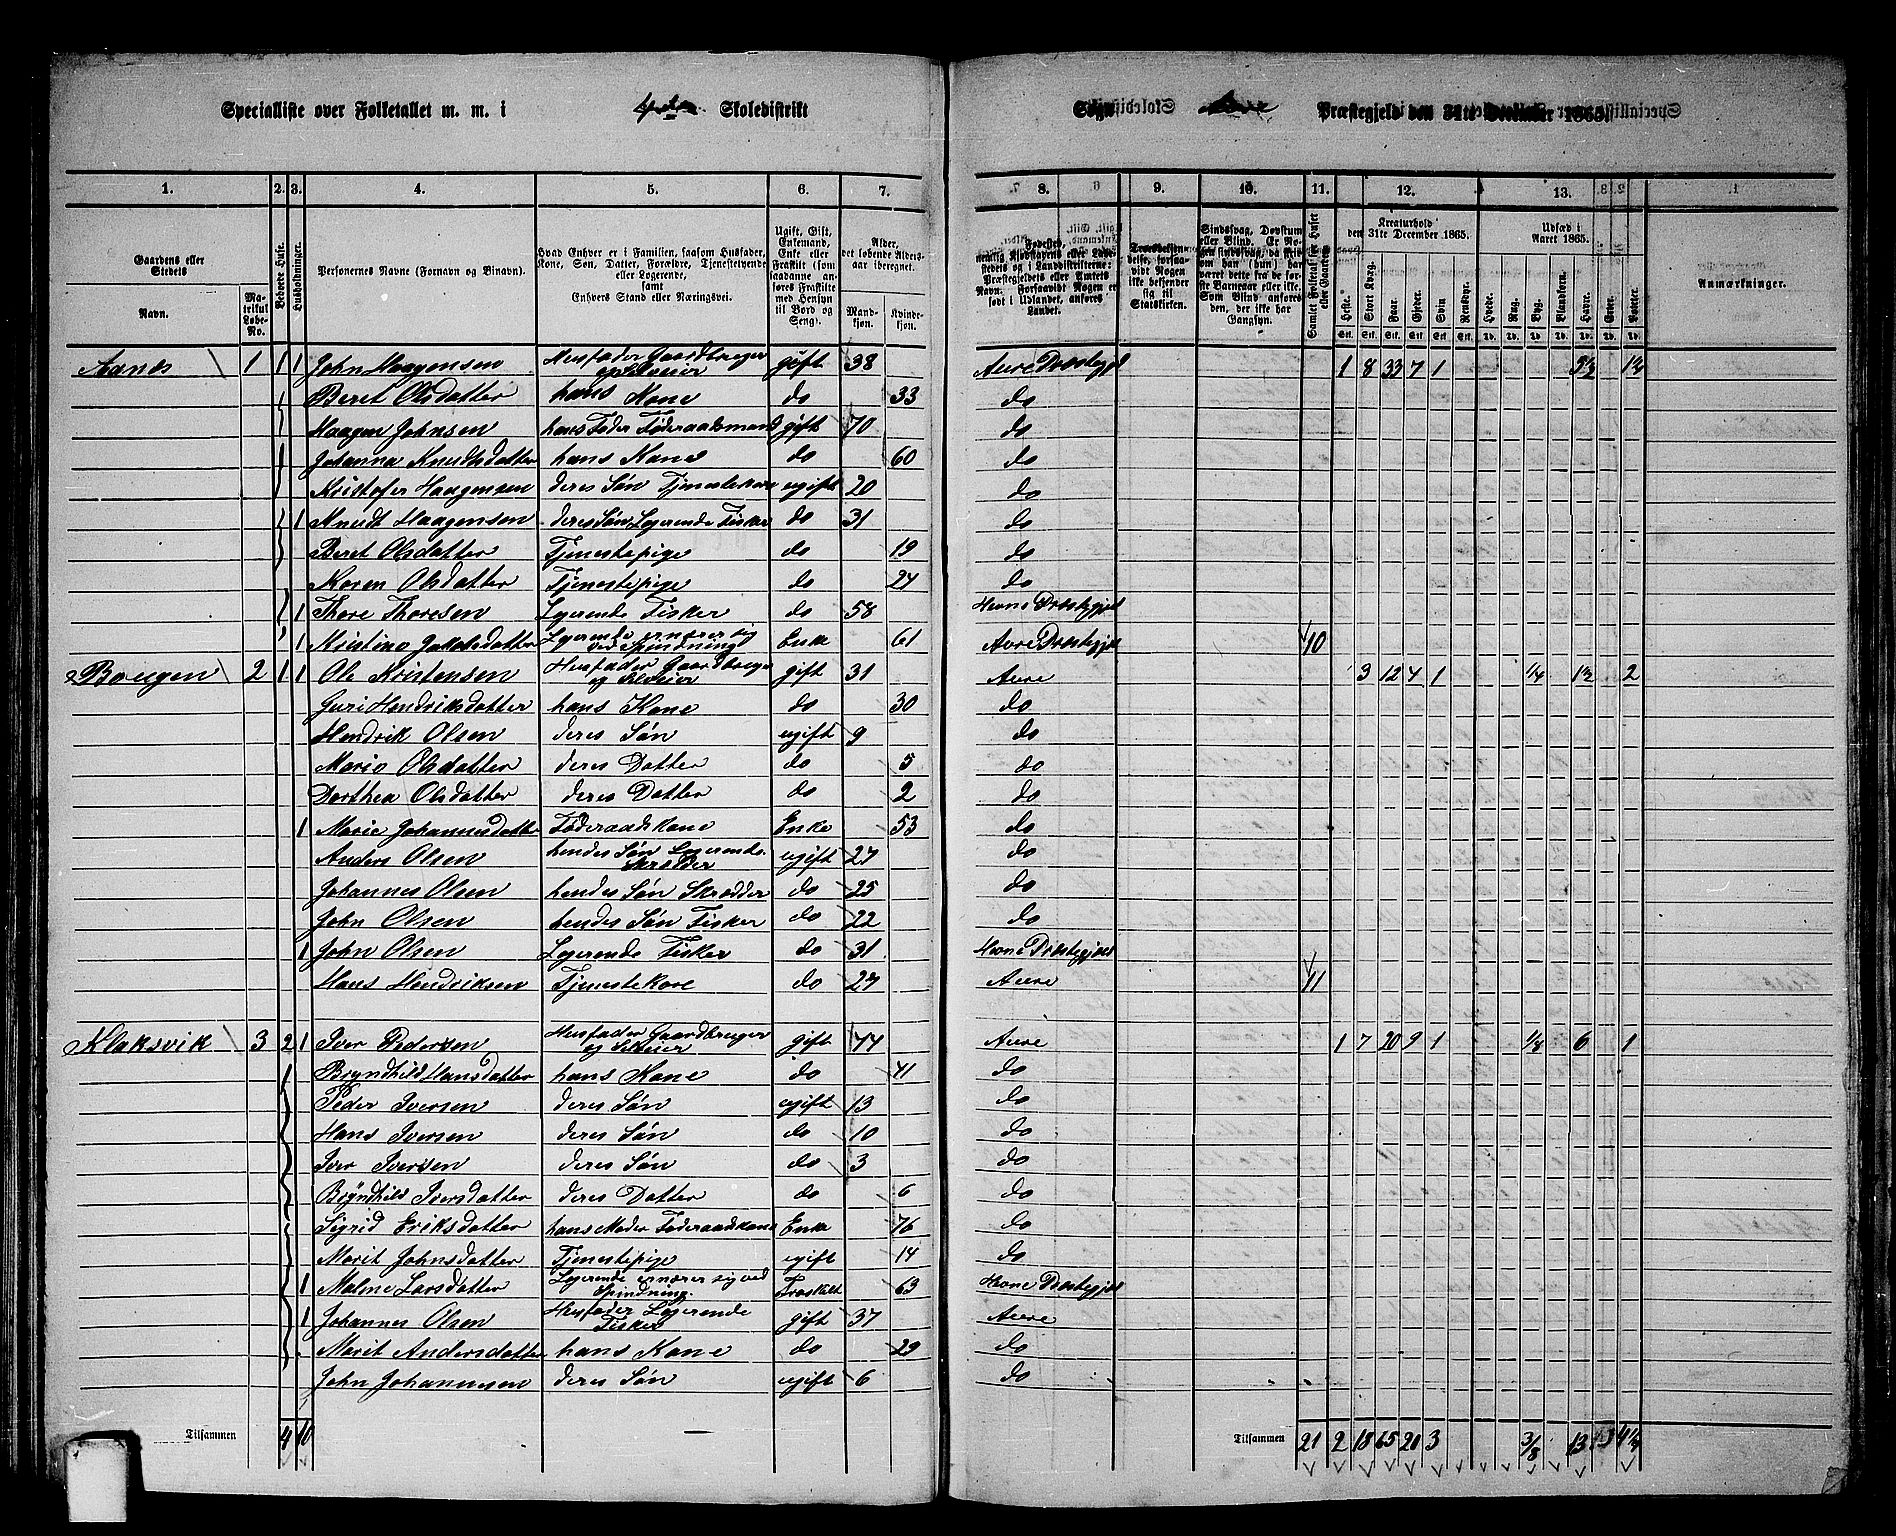 Specialliste over Folketallet m. m. i 4de Skoledistrikt Sogn Aure Præstegjeld den 31te December 1865.
1. 2. 3. 4. 5. 6. 7. 8. 9. 10. 11. 12. 13.
Gaardens eller Stedets
Navn. Matrikul Løbe-No.
Beboede Huse.
Husholdninger.
Personernes Navne (Fornavn og Binavn).
Hvad Enhver er i Familien, saasom Husfader, Kone, Søn, Datter, Forældre, Tjenestetyende eller Logerende, samt Enhvers Stand eller Næringsvei.
Ugift, Gift, Enkemand, Enke eller Fraskilt (som saadanne anføres Fraskilte med Hensyn til Bord og Seng).
Alder, det løbende Aldersaar iberegnet.
Mandkjøn. Kvindekjøn.
Samlet Folketal for Huset eller Gaarden
Sindssvag, Døvstum eller Blind.
Kreaturhold den 31te December 1865.
Heste. Stort Kvæg. Faar. Gjeder. Svin Rensdyr.
Udsæd i Aaret 1865.
Hvede. Rug. Byg. Blandkorn. Havre. Erter. Poteter.
Anmærkninger.
Aanes 1 1 1 John Haagensen Husfader Gaardbruger og Selveier gift 38 Aure Præstegjel 1 8 33 7 1 5½ 1½
Beret Olsdatter hans Kone do 33 do
Haagen Johnsen hans Fader Føderaadsmand gift 70 do
Johanna Knudtsdatter hans Kone do 60 do
Kristofer Haagensen deres Søn Tjenestekar ugift 20 do
1 Knudt Haagensen deres Søn Logerende Fisker do 31 do
Beret Olsdatter Tjenestepige do 19 do
Karen Olsdatter Tjenestepige do 24 do
1 Thore Thoresen Logerende Fisker do 58 Hevne Præstegjel
1 Kristine Jakobsdatter Logerende ernærer sig ved Spindning Enke 61 Aure Præstegjel 10
Bougen 2 1 1 Ole Kristensen Husfader Gaardbruger og Selveier gift 31 Aure 3 12 4 1 ¼ 1½ 2
Guri Hendriksdatter hans Kone do 30 do
Hendrik Olsen deres Søn ugift 9 do
Marie Olsdatter deres Datter do 5 do
Dorthea Olsdatter deres Datter do 2 do
1 Marie Johannesdatter Føderaadskone Enke 53 do
Anders Olsen hendes Søn Logerende Skrædder ugift 27 do
Johannes Olsen hendes Søn Skrædder do 25 do
John Olsen hendes Søn Fisker do 22 do
1 John Olsen Logerende Fisker do 31 Hevne Præstegjel
Hans Hendriksen Tjenestekare do 27 Aure 11
Klaksvik 3 2 1 Iver Pedersen Husfader Gaardbruger og Selveier gift 44 Aure 1 7 20 9 1 ⅛ 6 1
Bryndhild Hansdatter hans Kone do 41 do
Peder Iversen deres Søn ugift 13 do
Hans Iversen deres Søn do 10 do
Iver Iversen deres Søn do 3 do
Bryndhild Iversdatter deres Datter do 6 do
Sigrid Eriksdatter hans Moder Føderaadskone Enke 76 do
Marit Johnsdatter Tjenestepige ugift 14 do
1 Malene Larsdatter Logerende ernærer sig ved Spindning. Fraskilt 63 Hevne Præstegjel
1 Johannes Olsen Husfader Logerende Fisker gift 37 Aure
Marit Andersdatter hans Kone do 29 do
John Johannesen deres Søn ugift 6 do
Tilsammen 4 10 Tilsammen 21 2 18 65 20 3 3/8 13 4½